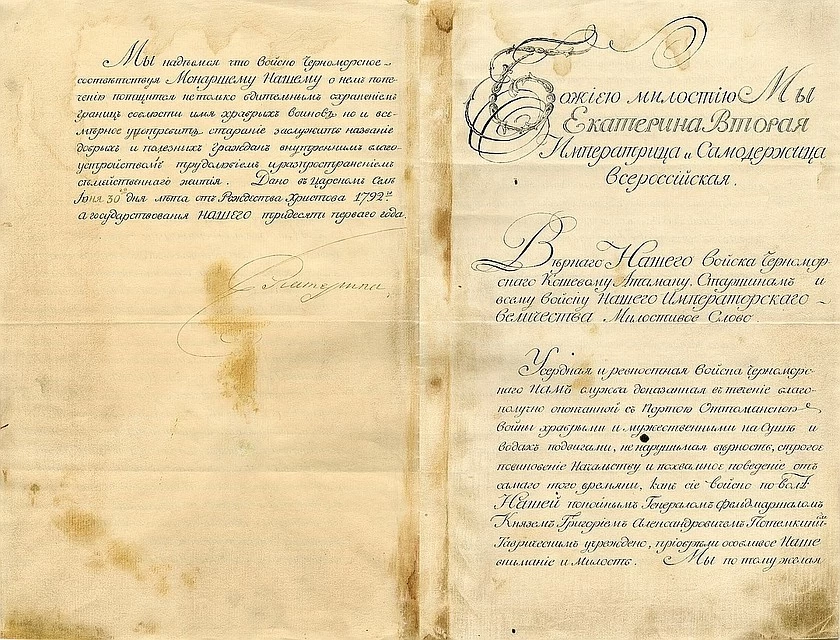 Мы надѣемся что Войско Черноморское
соотвѣтствуя Монаршему Нашему о немъ попе-
ченію потщится не только бдительнымъ охраненіемъ
границъ соблюсти имя храбрыхъ воиновъ но и все-
мѣрное употребить стараніе заслужить названіе
добрыхъ и полезныхъ гражданъ внутреннимъ благо-
устройствомъ трудолюбіемъ и распространеніемъ
семейственнаго житія. Дано въ Царскомъ Селѣ
Іюня 30го дня лѣта отъ Рождества Христова 1792го
а государствованія НАШЕГО тридесяти перваго года.
Екатерина
Божіею милостію Мы
Екатерина Вторая
Императрица и Самодержица
Всероссійская.
Вѣрнаго Нашего Войска Черномор
скаго Кошевому Атаману, Старшинамъ и
всему Войску Нашего Императорскаго
Величества Милостивое Слово.
Усердная и ревностная Войска Черноморс-
каго Намъ служба доказанная въ теченіе благо-
получно оконченной съ Портою Оттоманскою
войны храбрыми и мужественными на Сушѣ и
водахъ подвигами, ненарушимая вѣрность, строгое
повиновеніе Начальству и похвальное поведеніе отъ
самаго того времяни, какъ сіе войско по волѣ
Нашей покойнымъ Генераломъ фельдмаршаломъ
Княземъ Григоріемъ Александровичемъ Потемкинымъ
Таврическимъ учреждено, пріобрѣли особливое Наше
вниманіе и милость. Мы по тому желая